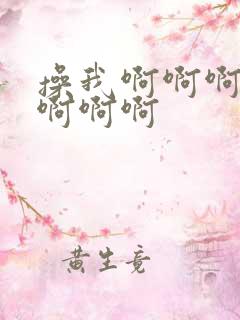 操我 啊啊啊
啊啊啊
黄生竟